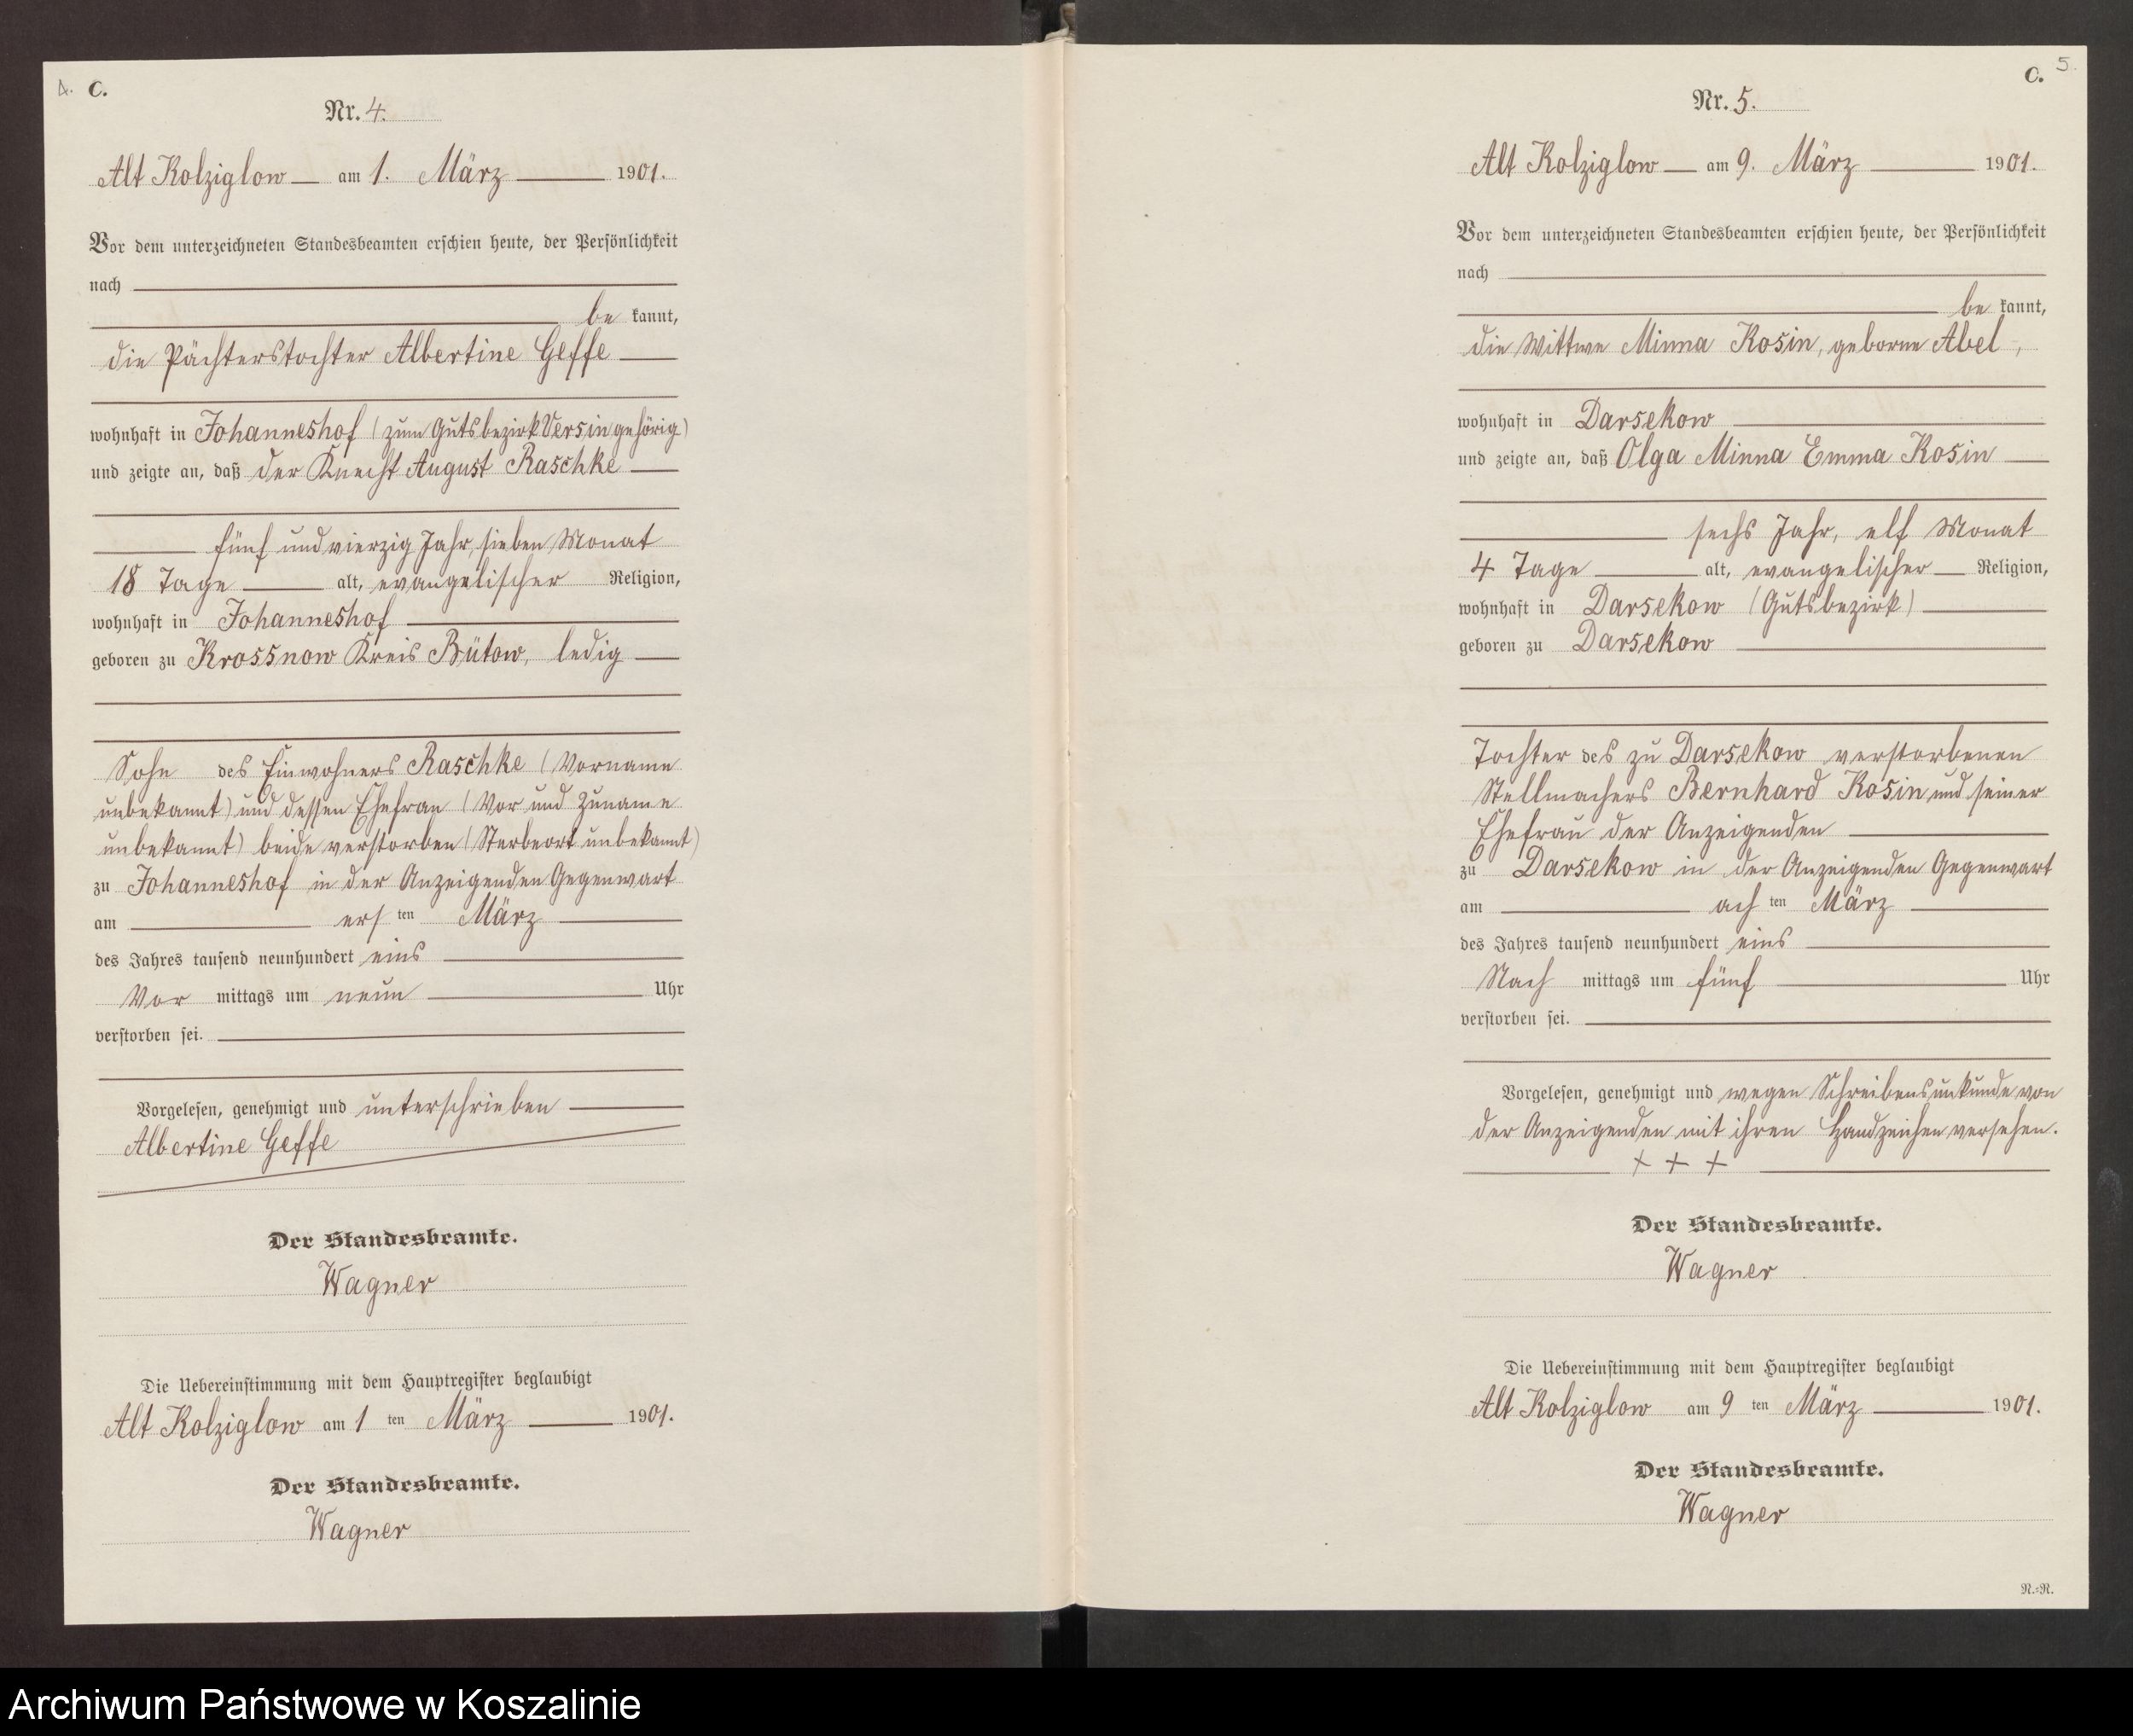 4. C.
Nr. 4.
Alt Kolziglow am 1. März 1901.
Vor dem unterzeichneten Standesbeamten erschien heute, der Persönlichkeit
nach
be kannt,
die Pächterstochter Albertine Geffe
wohnhaft in Johanneshof (zum Gutsbezirk Versin gehörig)
und zeigte an, daß der Knecht August Raschke
fünf und vierzig Jahr, sieben Monat
18 Tage alt, evangelischer Religion,
wohnhaft in Johanneshof
geboren zu Krossnow Kreis Bütow, ledig
Sohn des Einwohners Raschke (Vorname
unbekannt) und dessen Ehefrau (Vor und Zuname
unbekannt) beide verstorben (Sterbeort unbekannt)
zu Johanneshof in der Anzeigenden Gegenwart
am ers ten März
des Jahres tausend neunhundert eins
Vor mittags um neun Uhr
verstorben sei.
Vorgelesen, genehmigt und unterschrieben
Albertine Geffe
Der Standesbeamte.
Wagner
Die Uebereinstimmung mit dem Hauptregister beglaubigt
Alt Kolziglow am 1 ten März 1901.
Der Standesbeamte.
Wagner
C. 5.
Nr. 5.
Alt Kolziglow am 9. März 1901.
Vor dem unterzeichneten Standesbeamten erschien heute, der Persönlichkeit
nach
be kannt,
die Wittwe Minna Kosin, geborne Abel,
wohnhaft in Darsekow
und zeigte an, daß Olga Minna Emma Kosin
sechs Jahr, elf Monat
4 Tage alt, evangelischer Religion,
wohnhaft in Darsekow (Gutsbezirk)
geboren zu Darsekow
Tochter des zu Darsekow verstorbenen
Stellmachers Bernhard Kosin und seiner
Ehefrau der Anzeigenden
zu Darsekow in der Anzeigenden Gegenwart
am ach ten März
des Jahres tausend neunhundert eins
Nach mittags um fünf Uhr
verstorben sei.
Vorgelesen, genehmigt und wegen Schreibensunkunde von
der Anzeigenden mit ihren Handzeichen versehen.
+ + +
Der Standesbeamte.
Wagner
Die Uebereinstimmung mit dem Hauptregister beglaubigt
Alt Kolziglow am 9 ten März 1901.
Der Standesbeamte.
Wagner
N.=N.
Archiwum Państwowe w Koszalinie